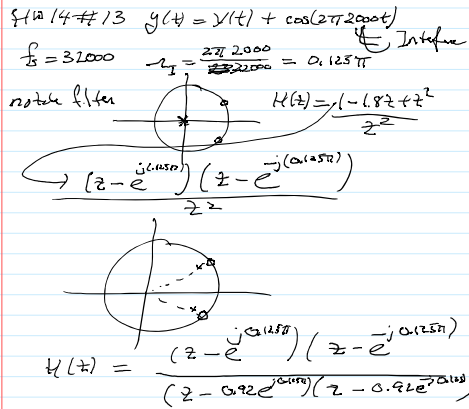 HW 14 #13 y(t) = v(t) + cos(2π2000t)
fs = 32000 ΩI = 2π 2000 / 32000 = 0.125π
notch filter H(z) = 1-1.8z+z² / z²
(z - e^j(.125π)) (z - e^-j(0.125π)) / z²
H(z) = (z - e^j0.125π)(z - e^-j0.125π) / (z - 0.92e^j0.125π)(z - 0.92e^-j0.125π)